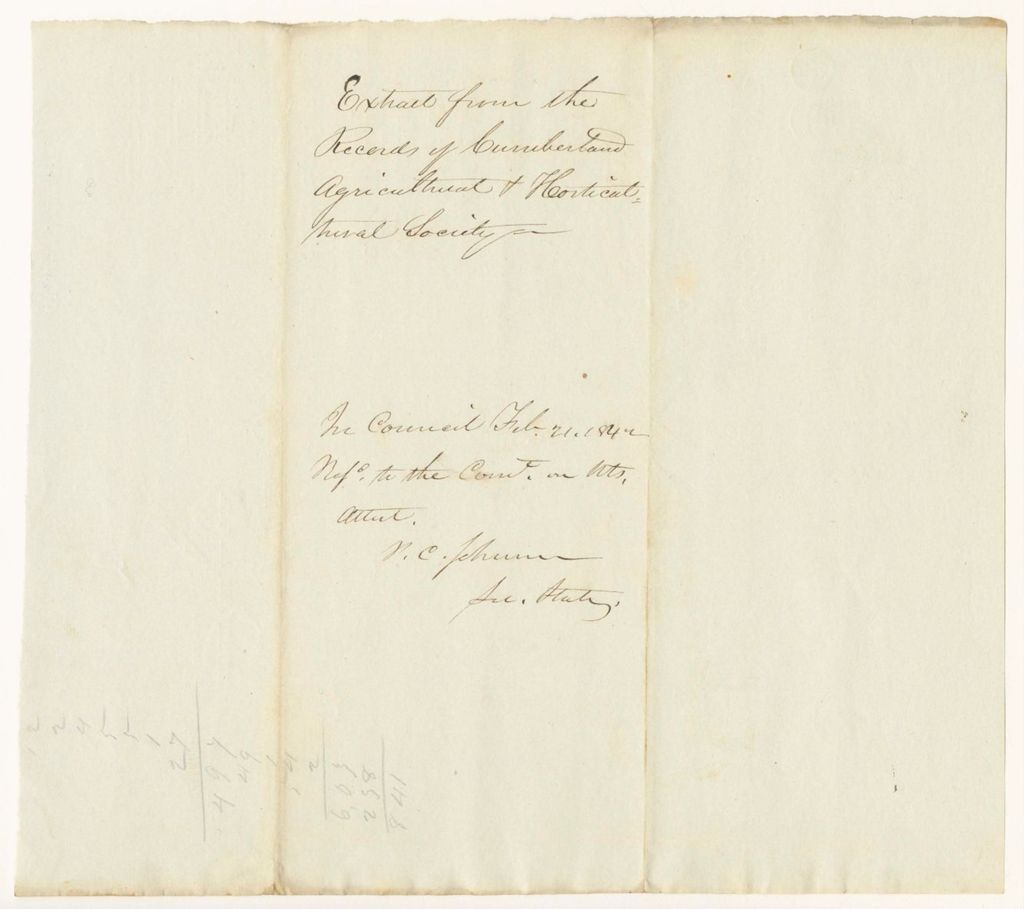 Extract from the
Records of Cumberland
Agricultural & Horticul=
tural Society
In Council Feb. 21. 1842
Refd. to the Comt. on Acts.
Attest.
P. C. Johnson
Sec. State.
148